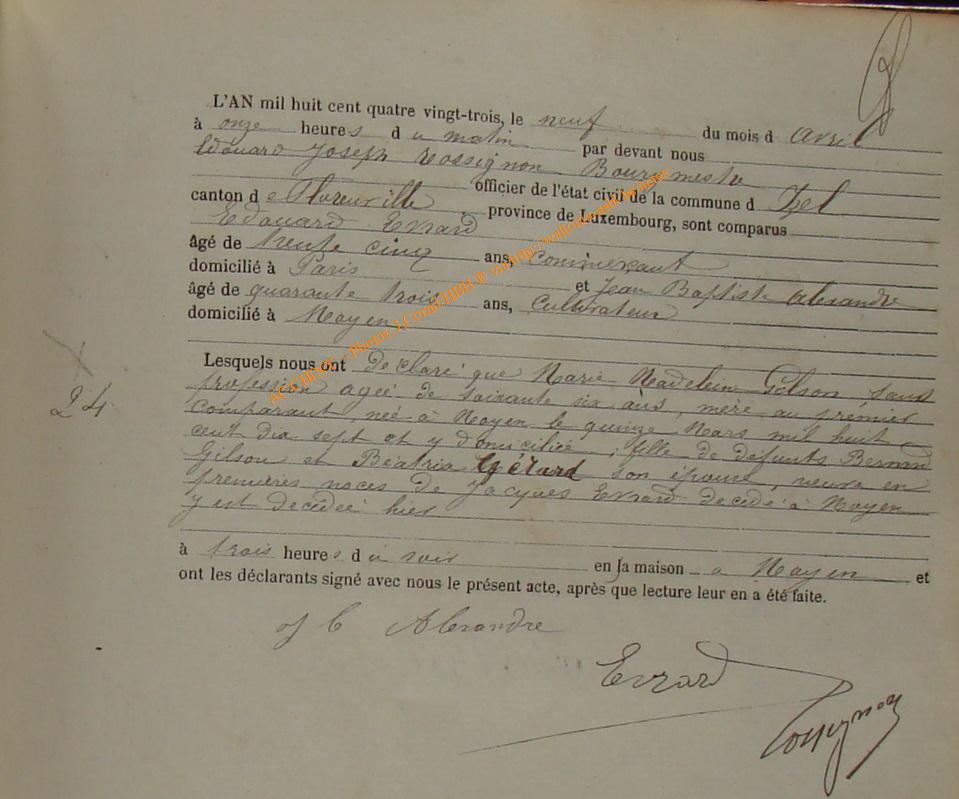 L'AN mil huit cent quatre vingt-trois, le neuf du mois d avril
à onze heures du matin par devant nous
Edouard Joseph Rossignon Bourgmestre
officier de l'état civil de la commune d Izel
canton de Florenville, province de Luxembourg, sont comparus
Edouard Evrard
âgé de trente cinq ans, commerçant
domicilié à Paris et Jean Baptiste Alexandre
âgé de quarante trois ans, cultivateur
domicilié à Moyen
Lesquels nous ont déclaré que Marie Madeleine Gilson, sans
profession agée de soixante six ans, mère au prémier
24
comparant, née à Moyen le quinze Mars mil huit
cent dix sept et y domiciliée, fille de défunts Bernard
Gilson et Béatrix Gérard son épouse, veuve en
premières noces de Jacques Evrard décédé à Moyen
y est décédée hier
à trois heures du soir en la maison à Moyen et
ont les déclarants signé avec nous le présent acte, après que lecture leur en a été faite.
J B Alexandre
Evrard
Rossignon